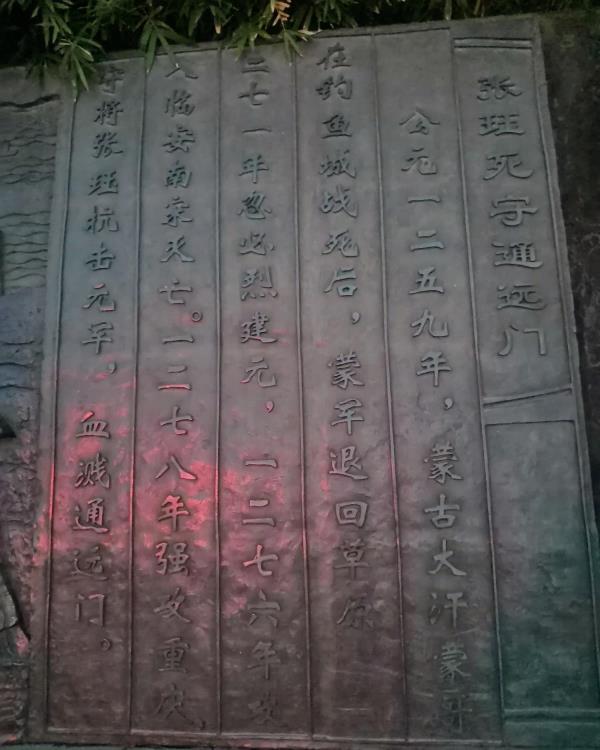 张珏死守通远门
公元一二五九年，蒙古大汗蒙哥
在钓鱼城战死后，蒙军退回草原
二七一年忽必烈建元，一二七六年攻
入临安南宋灭亡。一二七八年强攻重庆
守将张珏抗击元军，血溅通远门。